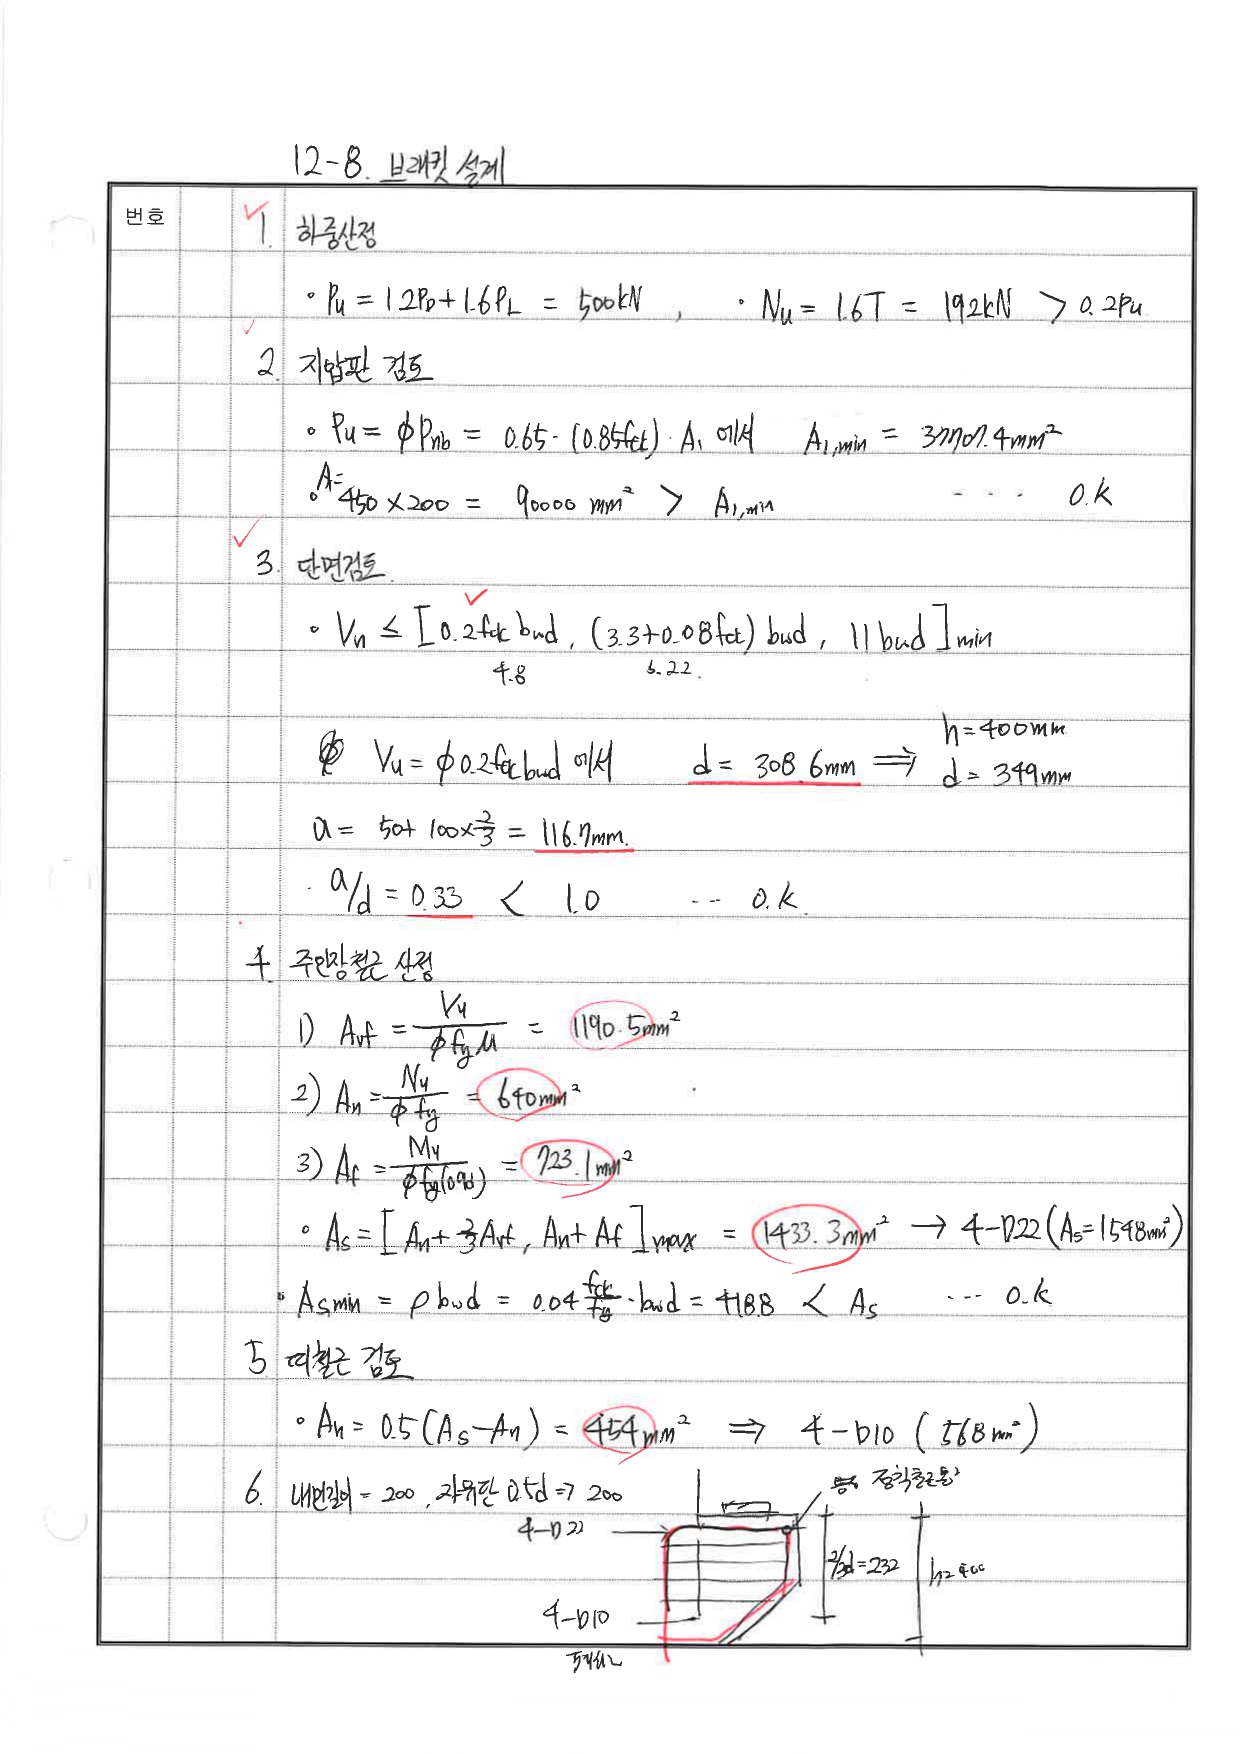 12-8. 브래킷 설계
번호
1. 하중산정
• Pu = 1.2PD + 1.6PL = 500kN , • Nu = 1.6T = 192kN > 0.2Pu
2. 지압판 검토
• Pu = φPnb = 0.65·(0.85fck)·A₁ 에서 A₁,min = 37707.4mm²
• A= 450×200 = 90000 mm² > A₁,min --- O.K
3. 단면검토.
• Vn ≤ [0.2fck bwd, (3.3+0.08fck) bwd, 11bwd]min
4.8 5.22.
Vu = φ0.2fck bwd 에서 d = 308.6mm ⇒ h=400mm
d = 349mm
a = 50+100×2/3 = 116.7mm.
· a/d = 0.33 < 1.0 --- O.K.
4 주인장철근 산정
1) Avf = Vu/φfyμ = 1190.5mm²
2) An = Nu/φfy = 640mm²
3) Af = Mu/φfy(0.9d) = 723.1mm²
• As = [An+2/3Avf, An+Af]max = 1433.3mm² → 4-D22(As=1548mm²)
• Asmin = ρbwd = 0.04 fck/fy·bwd = 418.8 < As --- O.K
5 띠철근 검토
• Ah = 0.5(As-An) = 454mm² ⇒ 4-D10 (568mm²)
6. 내민길이 = 200, 자유단 0.5d ⇒ 200
4-D22
2/3d=232
h=400
4-D10